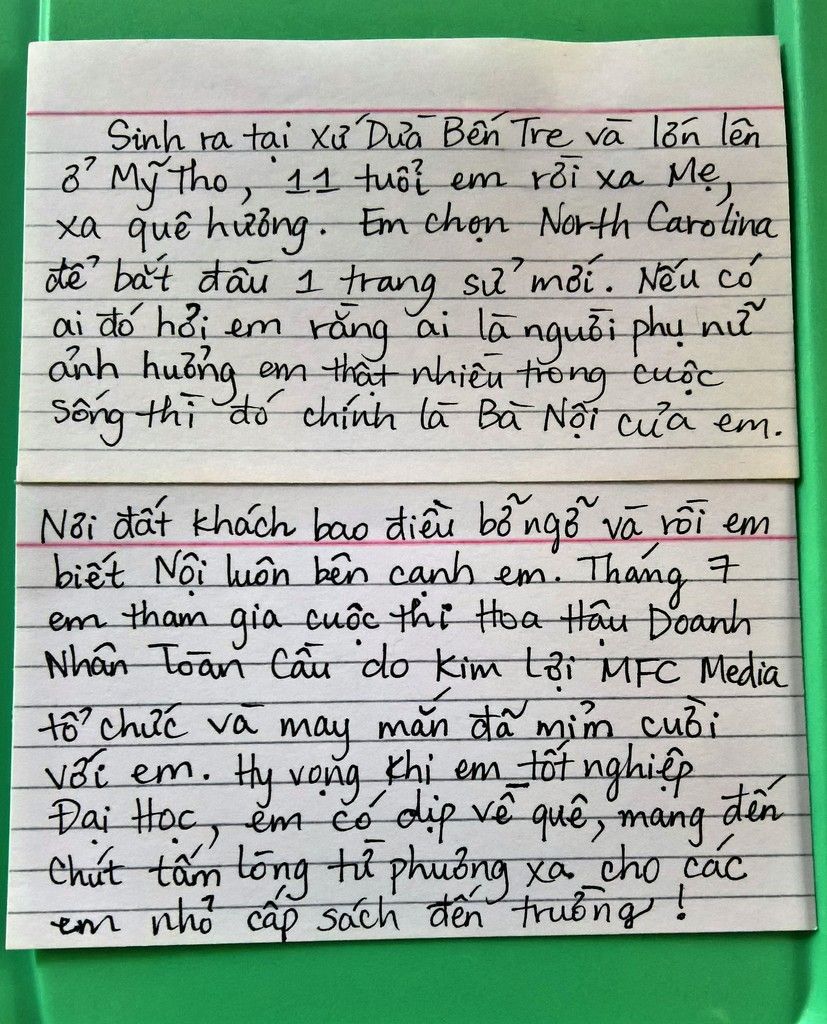 Sinh ra tại Xứ Dừa Bến Tre và lớn lên
ở Mỹ Tho, 11 tuổi em rời xa Mẹ,
xa quê hương. Em chọn North Carolina
để bắt đầu 1 trang sử mới. Nếu có
ai đó hỏi em rằng ai là người phụ nữ
ảnh hưởng em thật nhiều trong cuộc
sống thì đó chính là Bà Nội của em.
Nơi đất khách bao điều bỡ ngỡ và rồi em
biết Nội luôn bên cạnh em. Tháng 7
em tham gia cuộc thi Hoa Hậu Doanh
Nhân Toàn Cầu do Kim Lợi MFC Media
tổ chức và may mắn đã mỉm cười
với em. Hy vọng khi em tốt nghiệp
Đại Học, em có dịp về quê, mang đến
chút tấm lòng từ phương xa cho các
em nhỏ cấp sách đến trường!